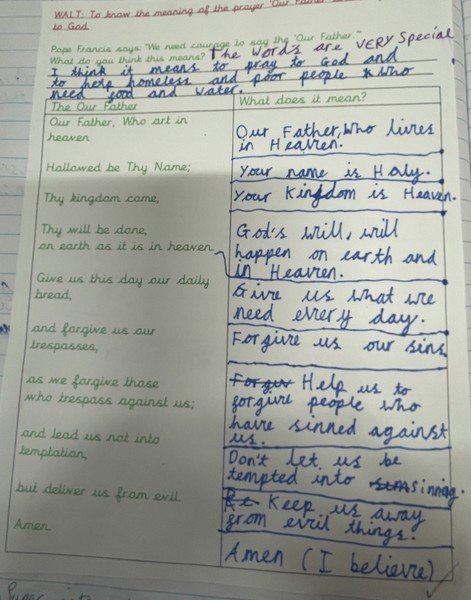 WALT: To know the meaning of the prayer 'Our Father
to God
Pope Francis says: "We need courage to say the 'Our Father.'"
What do you think this means? The words are very special
I think it means to pray to God and
to help homeless and poor people who
need food and water.
The Our Father
What does it mean?
Our Father, Who art in
heaven
Our Father, who lives
in Heaven.
Hallowed be Thy Name;
Your name is Holy.
Thy kingdom come,
Your Kingdom is Heaven.
Thy will be done,
on earth as it is in heaven
God's will, will
happen on earth and
in Heaven.
Give us this day our daily
bread,
Give us what we
need every day.
and forgive us our
trespasses,
Forgive us our sins
as we forgive those
who trespass against us;
Forgiv Help us to
forgive people who
have sinned against
us.
and lead us not into
temptation,
Don't let us be
tempted into sinning.
but deliver us from evil
Keep us away
from evil things.
Amen.
Amen (I believe)